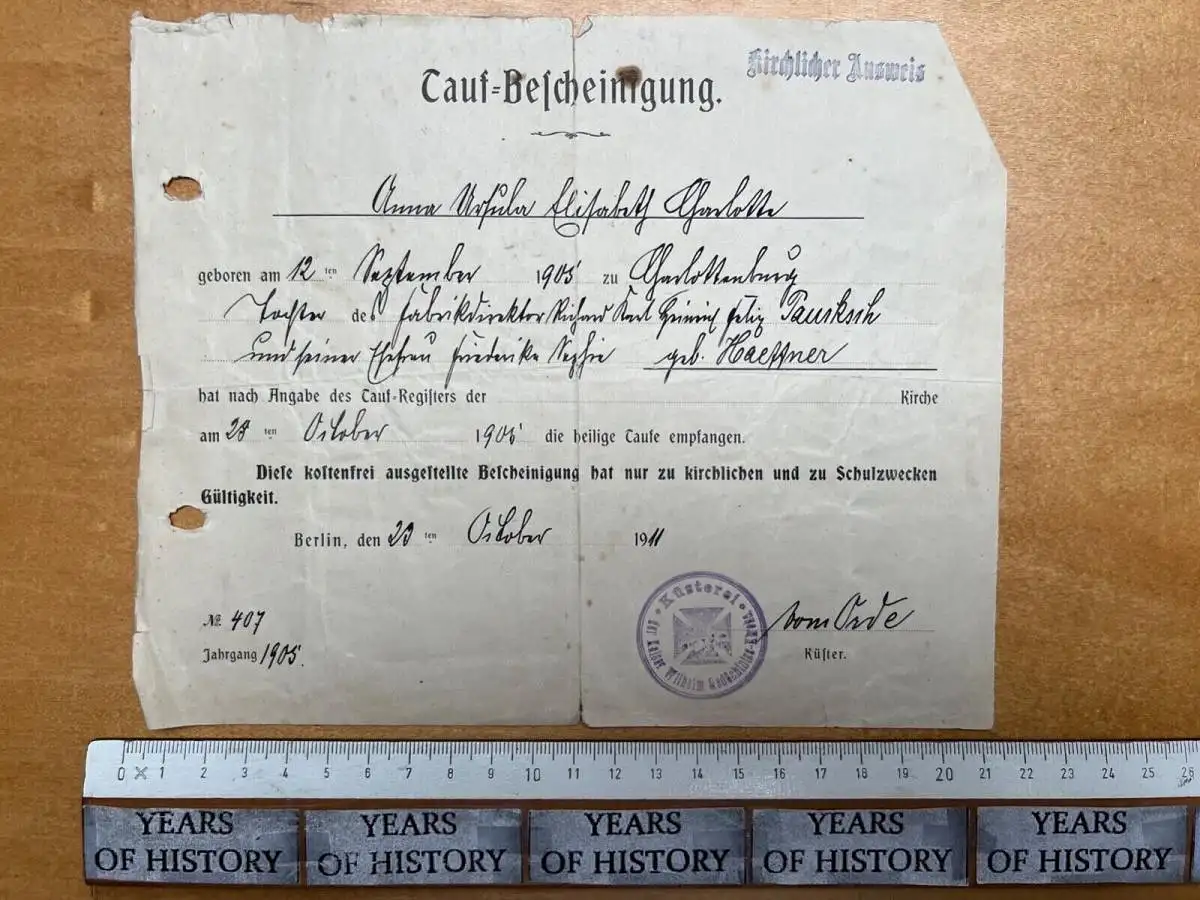 Kirchlicher Ausweis
Tauf-Bescheinigung.
Anna Ursula Elisabeth Charlotte
geboren am 12 ten September 1905 zu Charlottenburg
Tochter des Fabrikdirektor Richard Karl Heinrich Felix Pauksch
und seiner Ehefrau Friederike Sophie geb. Haeffner
hat nach Angabe des Tauf-Registers der Kirche
am 28 ten October 1905 die heilige Taufe empfangen.
Diese kostenfrei ausgestellte Bescheinigung hat nur zu kirchlichen und zu Schulzwecken
Gültigkeit.
Berlin, den 23 ten October 1911
№ 407
Jahrgang 1905.
Küsterei
der Kaiser Wilhelm Gedächtnis-Kirche
Küster.
0 1 2 3 4 5 6 7 8 9 10 11 12 13 14 15 16 17 18 19 20 21 22 23 24 25 26
YEARS OF HISTORY
YEARS OF HISTORY
YEARS OF HISTORY
YEARS OF HISTORY
YEARS OF HISTORY